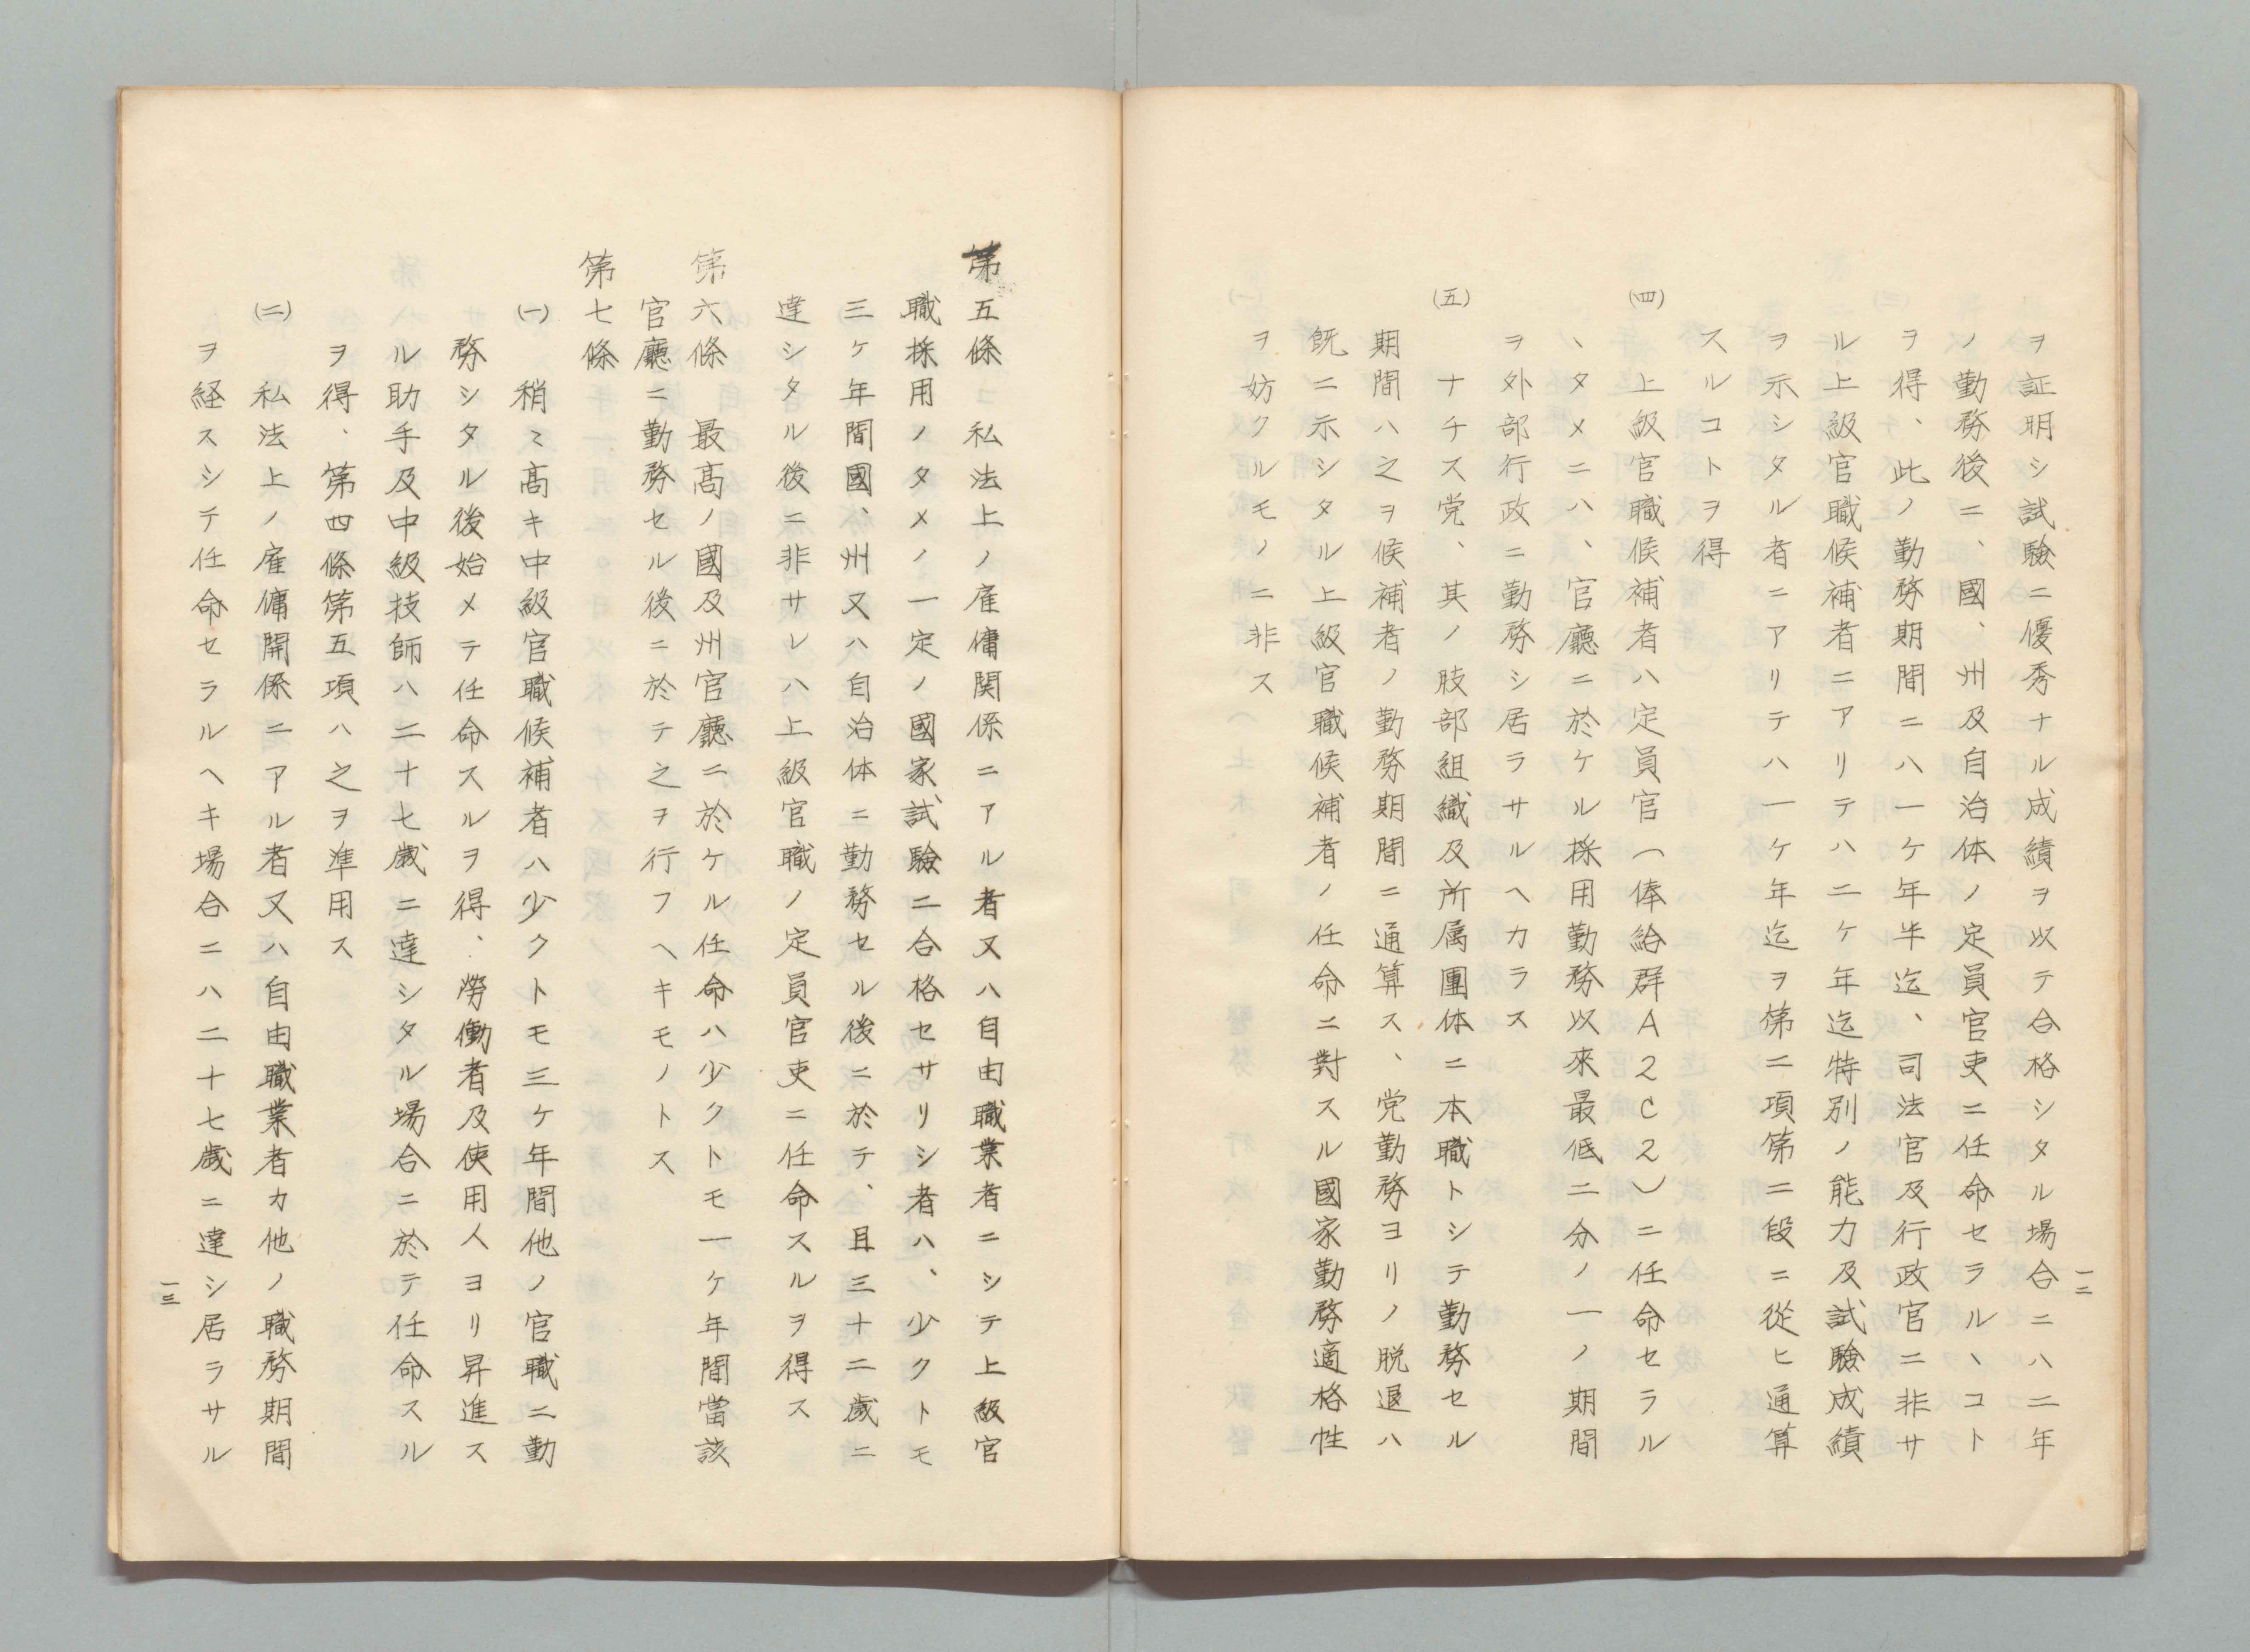 ヲ証明シ試驗ニ優秀ナル成績ヲ以テ合格シタル場合ニハ二年
ノ勤務後ニ、國、州及自治体ノ定員官吏ニ任命セラルヽコト
ヲ得、此ノ勤務期間ニハ一ケ年半迄、司法官及行政官ニ非サ
ル上級官職候補者ニアリテハ二ケ年迄特別ノ能力及試驗成績
ヲ示シタル者ニアリテハ一ケ年迄ヲ第二項第二段ニ從ヒ通算
スルコトヲ得
㈣ 上級官職候補者ハ定員官(俸給群A2C2)ニ任命セラル
ヽタメニハ、官廳ニ於ケル採用勤務以來最低二分ノ一ノ期間
ヲ外部行政ニ勤務シ居ラサルヘカラス
㈤ ナチス党、其ノ肢部組織及所属團体ニ本職トシテ勤務セル
期間ハ之ヲ候補者ノ勤務期間ニ通算ス、党勤務ヨリノ脱退ハ
既ニ示シタル上級官職候補者ノ任命ニ對スル國家勤務適格性
ヲ妨クルモノニ非ス
一二
第五條 私法上ノ雇傭関係ニアル者又ハ自由職業者ニシテ上級官
職採用ノタメノ一定ノ國家試驗ニ合格セサリシ者ハ、少クトモ
三ケ年間國、州又ハ自治体ニ勤務セル後ニ於テ、且三十二歳ニ
達シタル後ニ非サレハ上級官職ノ定員官吏ニ任命スルヲ得ス
第六條 最高ノ國及州官廳ニ於ケル任命ハ少クトモ一ケ年間當該
官廳ニ勤務セル後ニ於テ之ヲ行フヘキモノトス
第七條
㈠ 稍々高キ中級官職候補者ハ少クトモ三ケ年間他ノ官職ニ勤
務シタル後始メテ任命スルヲ得、勞働者及使用人ヨリ昇進ス
ル助手及中級技師ハ二十七歳ニ達シタル場合ニ於テ任命スル
ヲ得、第四條第五項ハ之ヲ準用ス
㈡ 私法上ノ雇傭関係ニアル者又ハ自由職業者カ他ノ職務期間
ヲ経スシテ任命セラルヘキ場合ニハ二十七歳ニ達シ居ラサル
一三